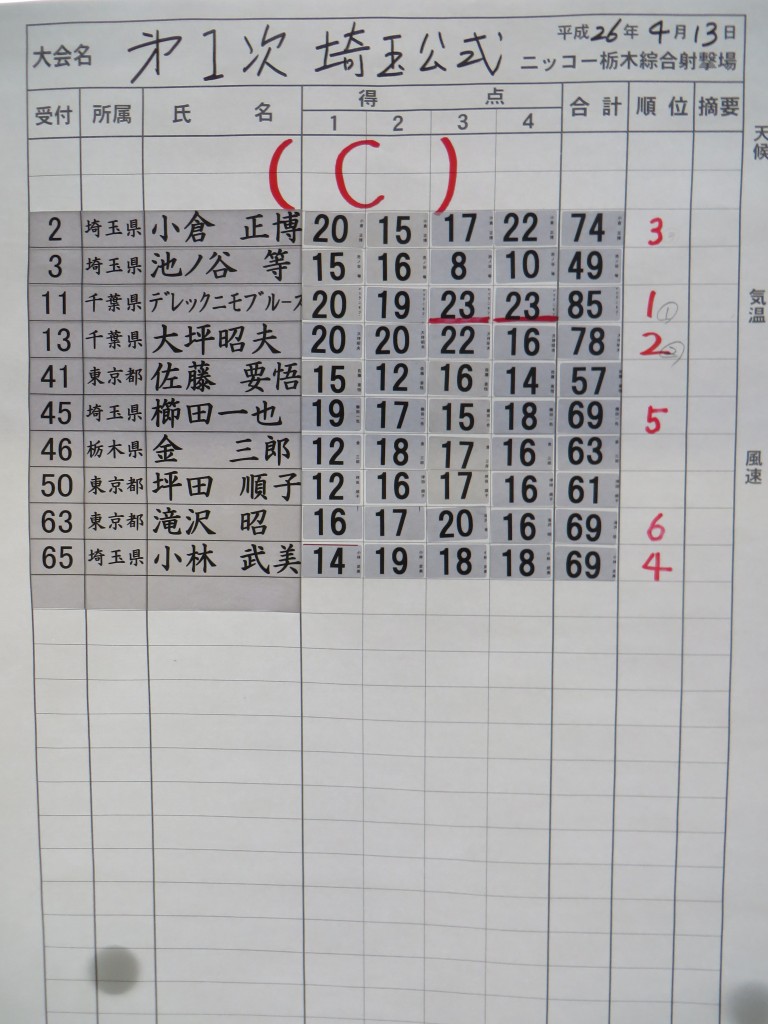 大会名 第1次 埼玉公式 平成26年4月13日
ニッコー栃木綜合射撃場
受付 所属 氏名 得点 合計 順位 摘要
1 2 3 4
(C)
2 埼玉県 小倉 正博 20 15 17 22 74 3
3 埼玉県 池ノ谷 等 15 16 8 10 49
11 千葉県 デレックニモブルース 20 19 23 23 85 1 ①
13 千葉県 大坪昭夫 20 20 22 16 78 2 ②
41 東京都 佐藤 要悟 15 12 16 14 57
45 埼玉県 櫛田一也 19 17 15 18 69 5
46 栃木県 金 三郎 12 18 17 16 63
50 東京都 坪田 順子 12 16 17 16 61
63 東京都 滝沢 昭 16 17 20 16 69 6
65 埼玉県 小林 武美 14 19 18 18 69 4
天候
気温
風速